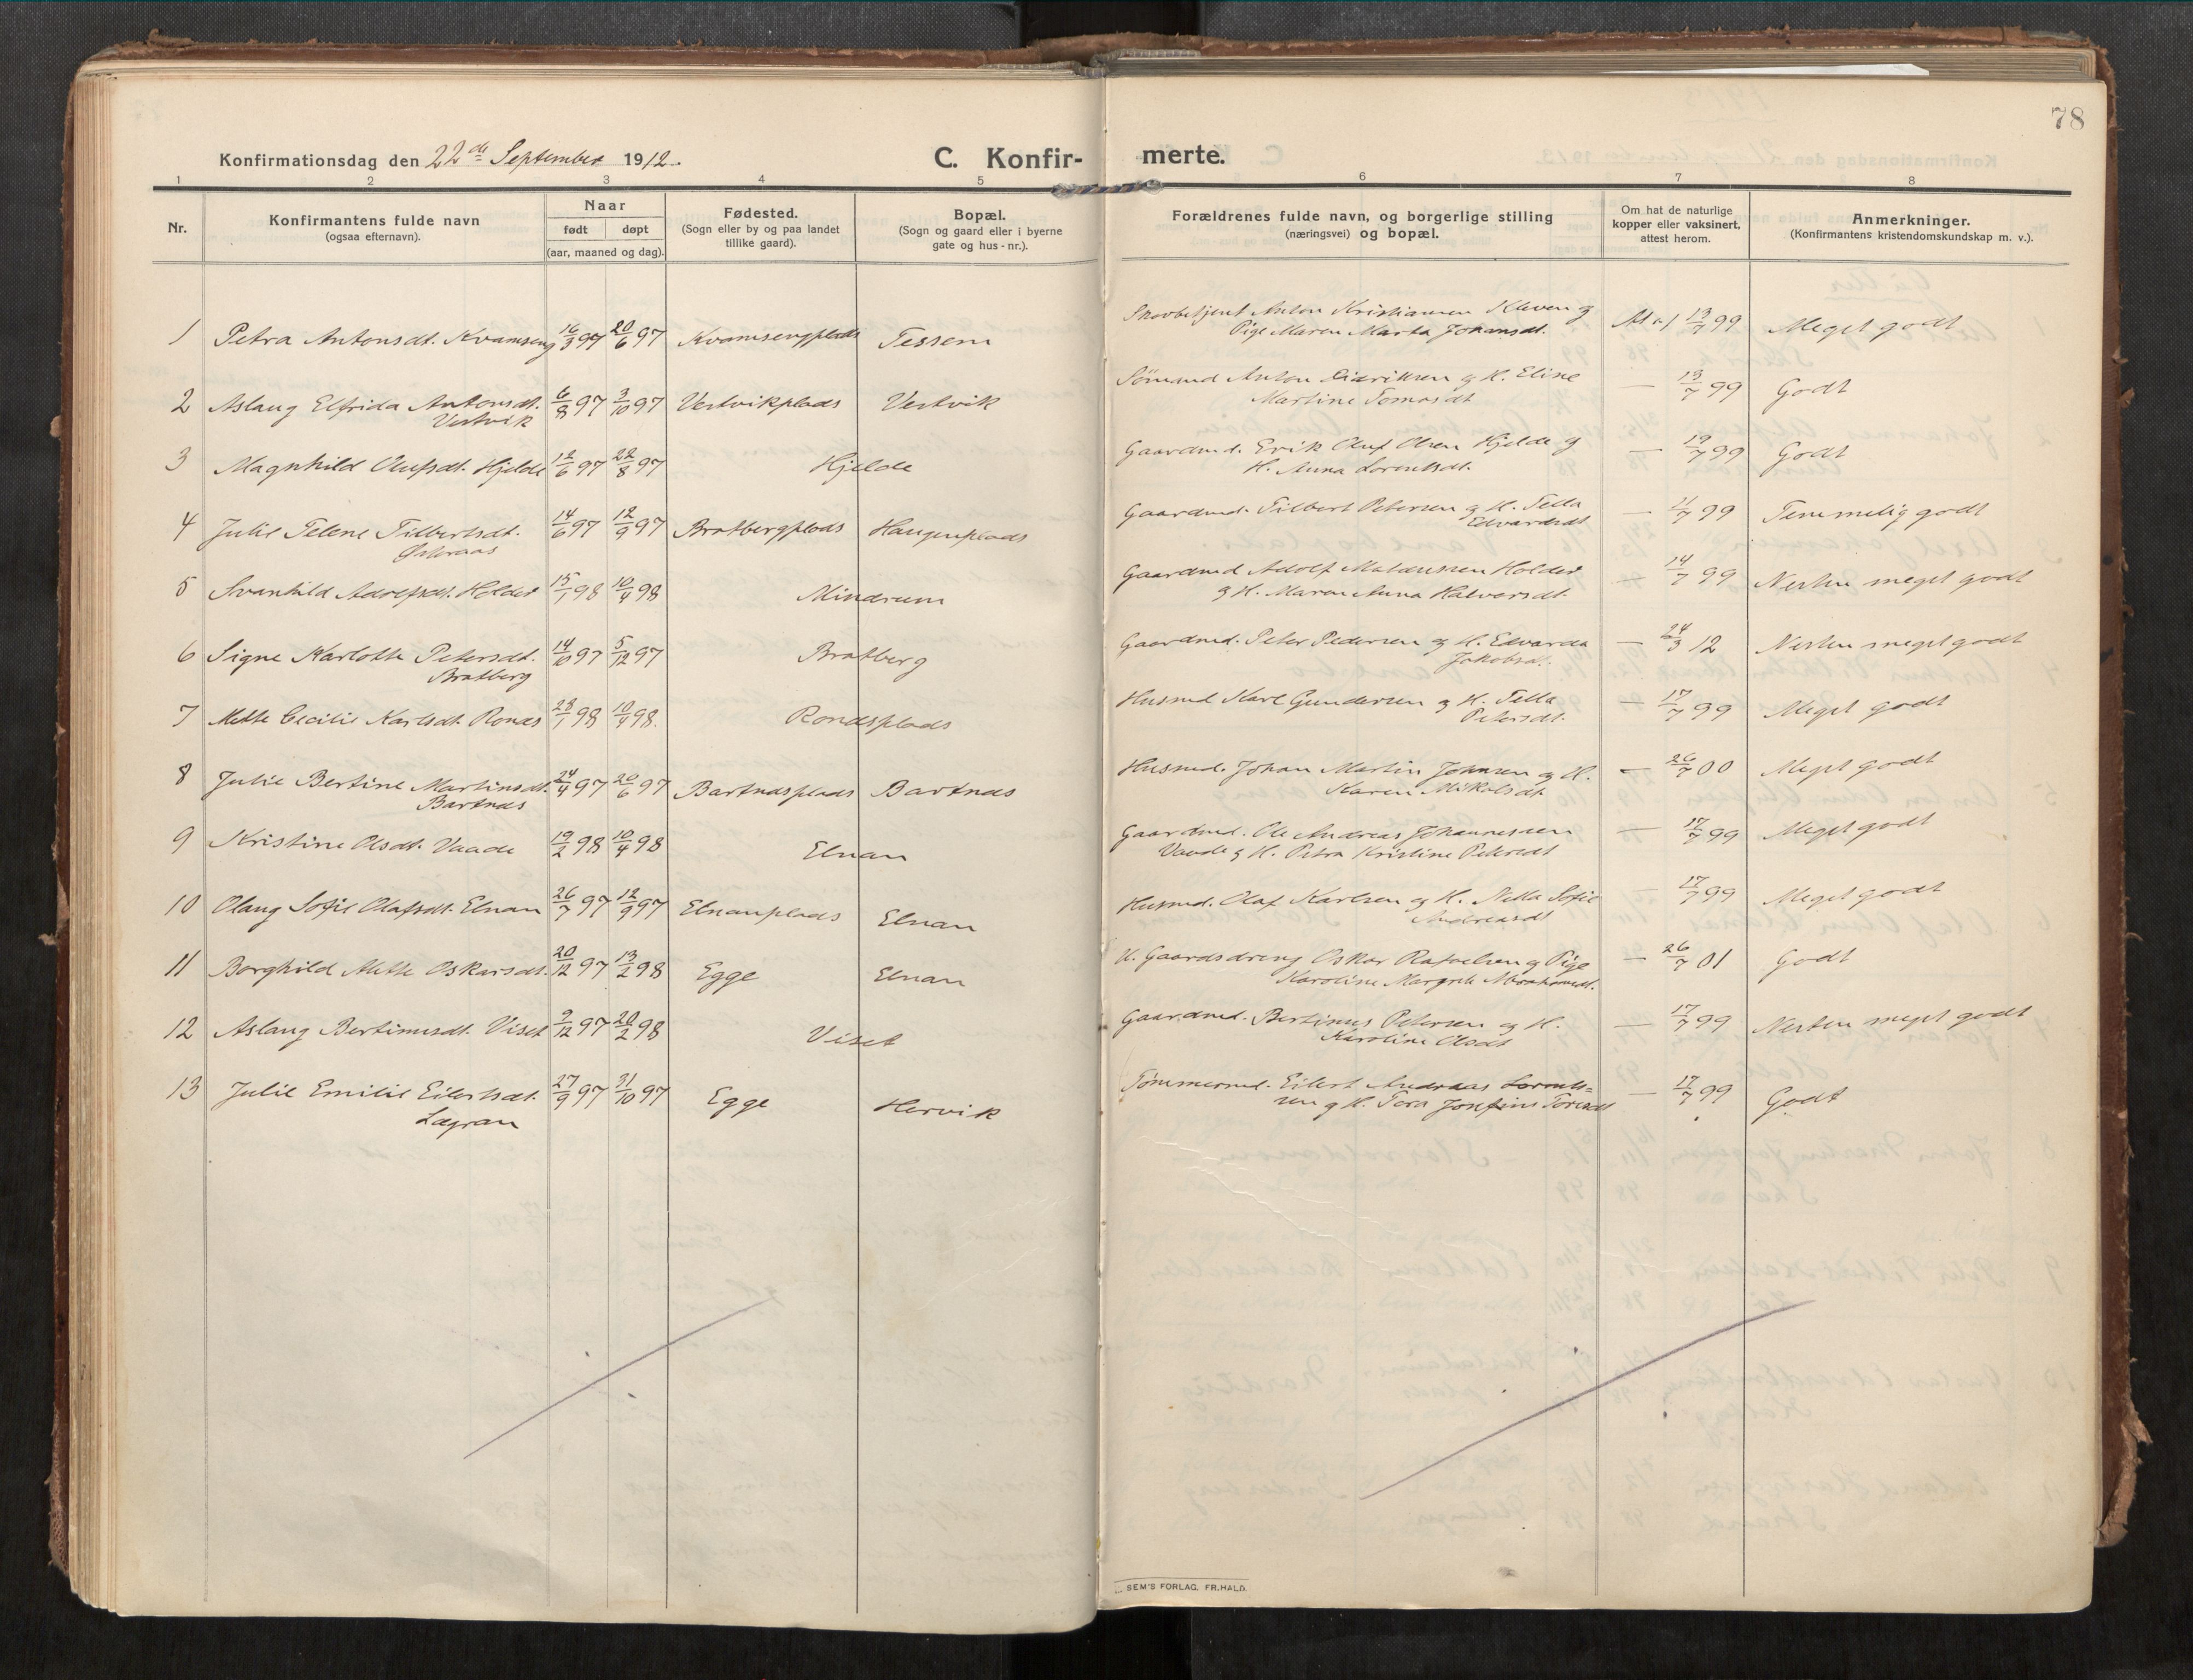 78
Konfirmationsdag den 22de September 1912.
C. Konfir-merte.
1 2 3 4 5 6 7 8
Nr.
Konfirmantens fulde navn
(ogsaa efternavn).
Naar
født døpt
(aar, maaned og dag).
Fødested.
(Sogn eller by og paa landet
tillike gaard).
Bopæl.
(Sogn og gaard eller i byerne
gate og hus-nr.).
Forældrenes fulde navn, og borgerlige stilling
(næringsvei) og bopæl.
Om hat de naturlige
kopper eller vaksinert,
attest herom.
Anmerkninger.
(Konfirmantens kristendomskundskap m. v.).
1 Petra Antonsdt. Kvamseng 16/3 97 20/6 97 Kvamsengplads Tessem
Skovbetjent Anton Kristiansen Kleven og
Pige Maren Marta Johansdt. 13/7 99 Meget godt
2 Aslaug Elfrida Antonsdt. 6/8 97 3/10 97 Vestvikplads Vestvik
Vestvik
Sømand Anton Didriksen og H. Eline
Martine Tomasdt — 13/7 99 Godt
3 Magnhild Olufsdt. Hjelde 12/6 97 22/8 97 Hjelde
Gaardmd. Erik Oluf Olsen Hjelde og
H. Anna Lorentsdt. — 19/7 99 Godt
4 Julie Telene Tilbertsdt. 14/6 97 12/9 97 Bratbergplads Haugenplads
Gaardmd. Tilbert Petersen og H. Tella
Edvardsdt — /7 99 Temmelig godt
5 Svanhild Adolfsdt. Holder 15/1 98 10/4 98 Mindrum
Gaardmd Adolf Holder
og H. Maren Anna Halvorsdt. — 14/7 99 Nesten meget godt
6 Signe Karlotte Petersdt. 14/10 97 5/12 97 Bratberg
Bratberg
Gaardmd. Peter Pedersen og H. Edvarda
Jakobsd. — 24/3 12 Nesten meget godt
7 Mette Cecilie Karlsdt. Ronas 28/1 98 10/4 98. Ronasplads
Husmd Karl Gundersen og H. Tella
Petersdt. — 17/7 99 Meget godt
8 Julie Bertine Martinsdt. 24/4 97 20/6 97 Bartnasplads Bartnas
Bartnas
Husmd. Johan Martin Johnsen og H.
Karen Mikalsdt. — 26/7 00 Meget godt
9 Kristine Olsdt. Vaade 19/2 98 10/4 98 Elnan
Gaardmd. Ole Andreas Johannessen
Vaade og H. Petra Kristine Petersdt — 17/7 99 Meget godt
10 Olaug Sofie Olafsdt. Elnan 26/7 97 12/9 97 Elnanplads Elnan
Husmd. Olaf Karlsen og H. Nella Sofie
Andreasdt — 17/7 99 Meget godt
11 Borghild Mette Oskarsdt. 20/12 97 13/2 98 Egge Elnan
U. Gaardsdreng Oskar Rafaelsen og Pige
Karoline Margrete Abrahamsdt. — 26/7 01 Godt
12 Aslaug Bertinusdt. Viset 9/12 97 20/2 98 Viset
Gaardmd. Bertinus Petersen og H.
Karoline Olsdt — 17/7 99 Nesten meget godt
13 Julie Emilie Eilertsdt. 27/9 97 31/10 97 Egge Hervik
Lægran
Tømmermd. Eilert Andreas Lorents=
sen og H. Tora Josefine Toresdt — 17/7 99 Godt
SEM'S FORLAG. FR. HALD.